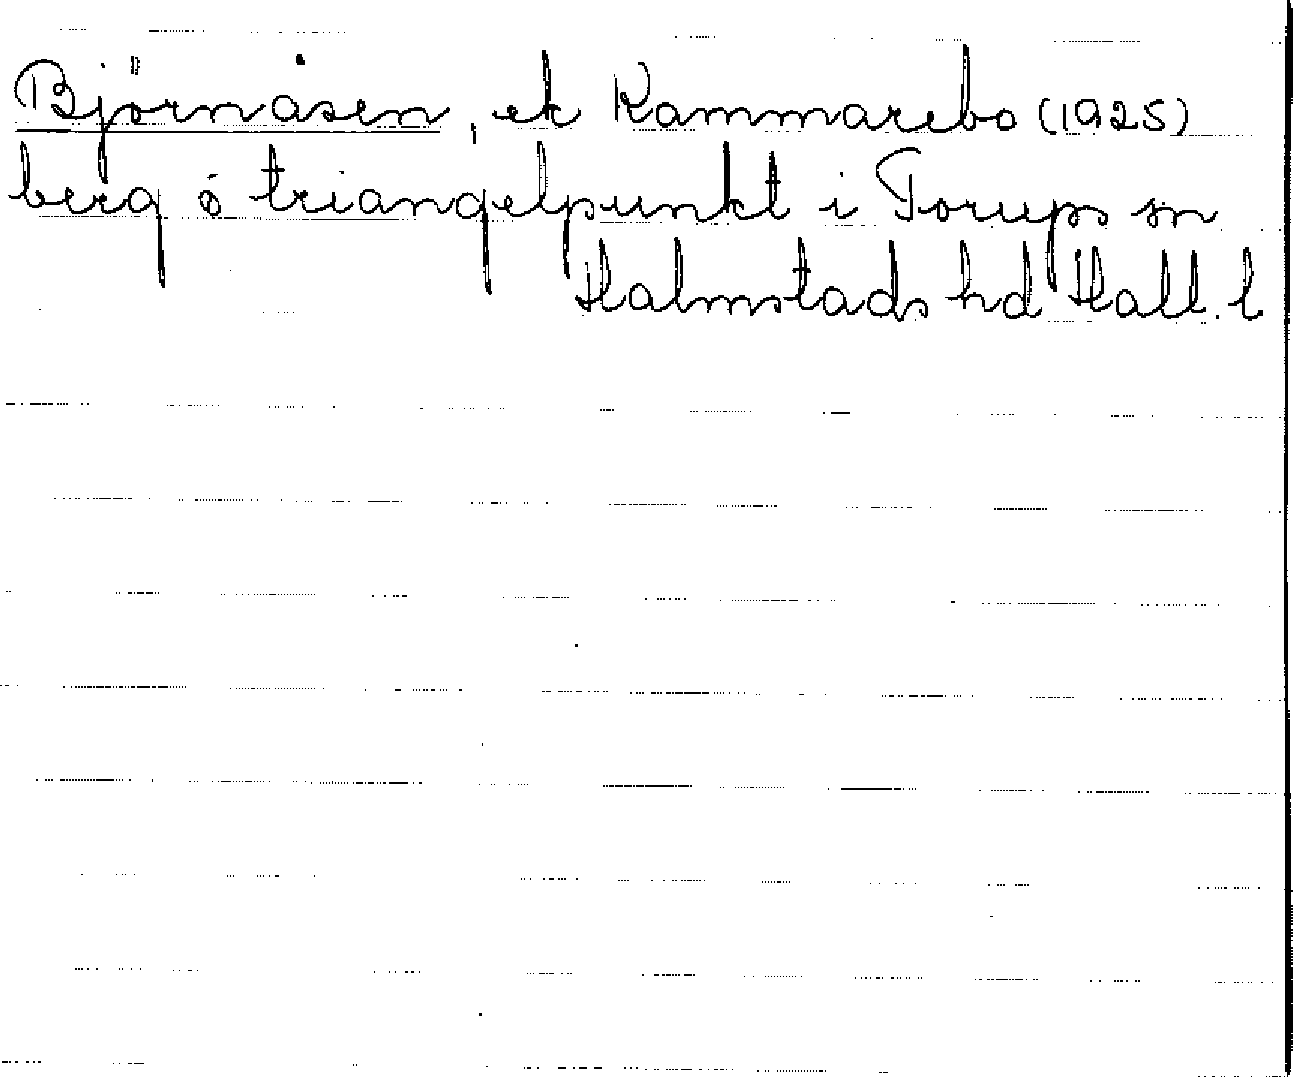 Björnåsen, ek Kammarebo (1925)
berg o triangelpunkt i Torups sn
Halmstads hd Hall. l